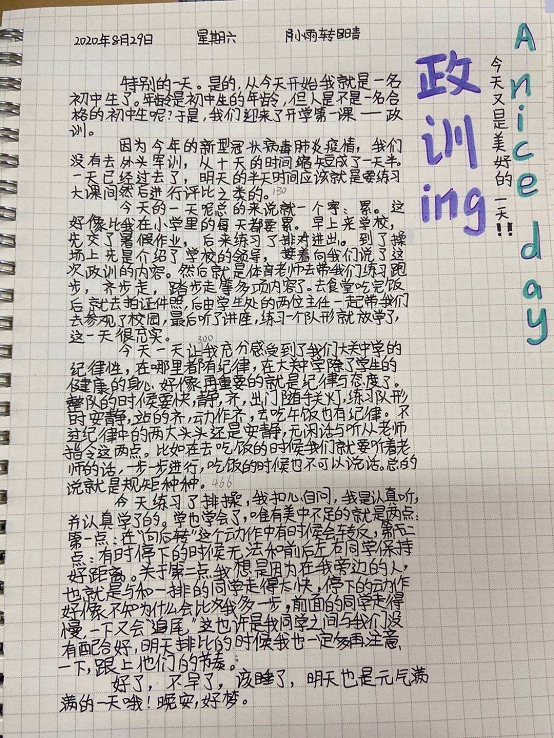 2020年8月29日 星期六 小雨转晴
A nice day
今天又是美好的一天!!
政训ing
特别的一天。是的,从今天开始我就是一名
初中生了。年龄是初中生的年龄,但人是不是一名合
格的初中生呢?于是,我们迎来了开学第一课——政
训。
因为今年的新型冠状病毒肺炎疫情,我们
没有去外头军训,从十天的时间缩短成了一天半。
一天已经过去了,明天的半天时间应该就是要练习
大课间然后进行评比之类的。130
今天的一天呢总的来说就一个字:累。这
好像比我在小学里的每天都要累。早上来学校,
先交了暑假作业,后来练习了排队进出。到了操
场上先是介绍了学校的领导,接着向我们说了这
次政训的内容。然后就是体育老师去带我们练习跑
步,齐步走,踏步走等多项内容了。去食堂吃完饭
后就去拍证件照,后由学生处的两位主任一起带我们
去参观了校园,最后听了讲座,练习一个队形就放学了,
这一天很充实。300
今天一天让我充分感受到了我们大关中学的
纪律性,在哪里都有纪律,在大关中学除了学生的
健康的身心好像再重要的就是纪律与态度了。
整队的时候要快,静,齐,出门随手关灯,练习队形
时安静,站的齐,动作齐,去吃午饭也有纪律。不
过纪律中的两大头头还是安静,无闲话与听从老师
指令这两点。比如在去吃饭的时候我们就要听着老
师的话,一步一步进行,吃饭的时候也不可以说话。总的
说就是规矩种种。466
今天练习了排操,我扪心自问,我是认真听,
并认真学了的。学也学会了,唯有美中不足的就是两点:
第一点:在“向后转”这个动作中有时候会转反,第二
点:有时停下的时候无法和前后左右同学保持
好距离。关于第二点我想是因为在我旁边的人,
也就是与和一排的同学走得太快,停下的动作
好像不知为什么会比我多一步,前面的同学走得
慢,一下又会“追尾”。这也许是我同学之间与我们没
有配合好,明天排比的时候我也一定多再注意
一下,跟上他们的节奏。
好了,不早了,该睡了,明天也是元气满
满的一天哦!晚安,好梦。